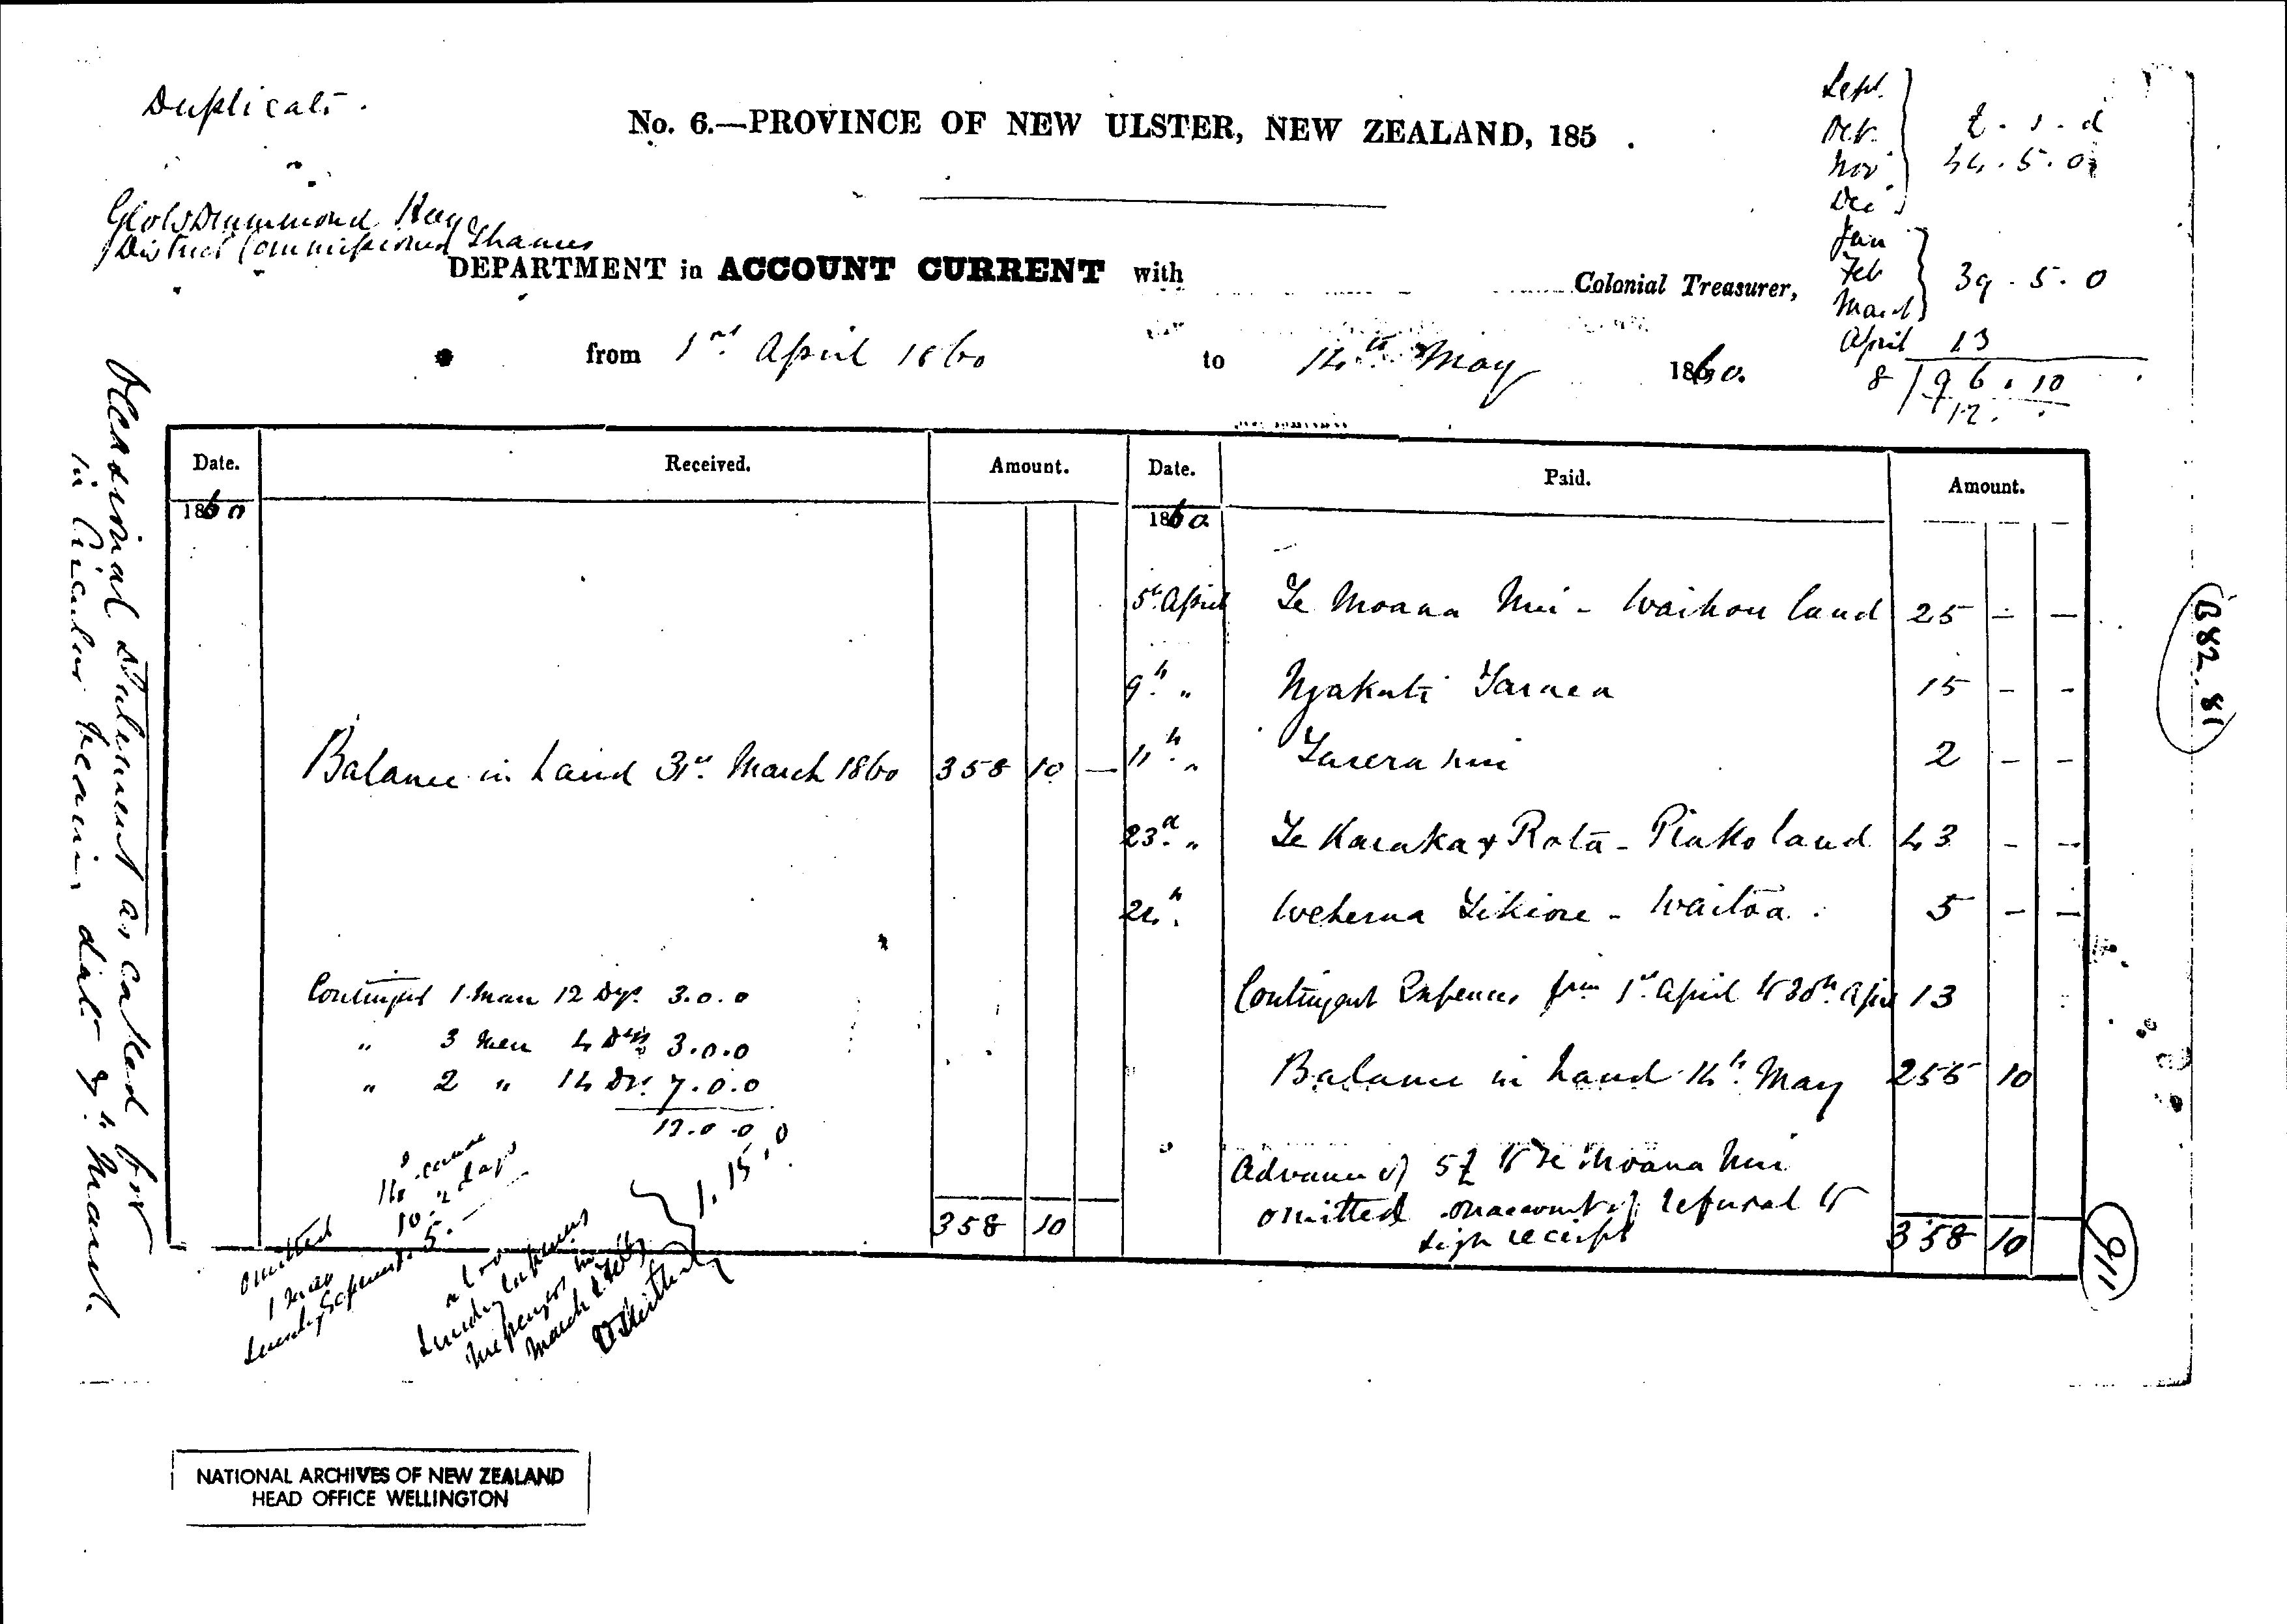 Duplicate.
No. 6.—PROVINCE OF NEW ULSTER, NEW ZEALAND, 185 .
Drummond Hay
District Commissioner Thames
DEPARTMENT in ACCOUNT CURRENT with Colonial Treasurer,
from 1st April 1860 to 14th May 1860.
Sept.
Oct.
Nov
Dec
£ . s . d
44 . 5 . 0
Jan
Feb
March
39 . 5 . 0
April 13
8 / 96 . 10
12 .
Occasional Statement as called for
in Circular dated 9th March.
Date. Received. Amount. Date. Paid. Amount.
1860 1860
5th April Te Moana Nui - Waihou land 25 — —
9th „ Ngakuti 15 - -
Balance in hand 31st March 1860 358 10 —
11th „ 2 - -
23d „ Te Karaka & Rota - Piako land 43 - -
24th Tikiore - Waitoa. 5 - -
Contingent 1 man 12 Dys 3.0.0
„ 3 men 4 Dys 3.0.0
„ 2 „ 14 Dys 7.0.0
13.0.0
Contingent Expences from 1st April to 30th April 13
Balance in hand 14th May 255 10
Advance of 5£ to Te Moana Nui
omitted on account of refusal to
sign receipt
358 10
358 10
omitted
1 man
10.
5. -
also
March & Feby
1.15.0
B82. 81
911
NATIONAL ARCHIVES OF NEW ZEALAND
HEAD OFFICE WELLINGTON